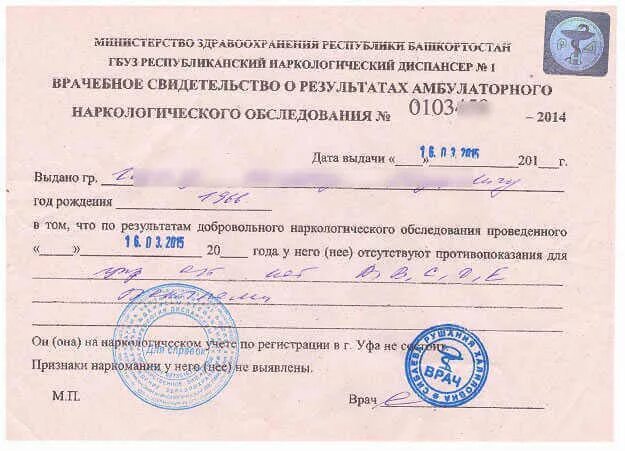 МИНИСТЕРСТВО ЗДРАВООХРАНЕНИЯ РЕСПУБЛИКИ БАШКОРТОСТАН
ГБУЗ РЕСПУБЛИКАНСКИЙ НАРКОЛОГИЧЕСКИЙ ДИСПАНСЕР № 1
ВРАЧЕБНОЕ СВИДЕТЕЛЬСТВО О РЕЗУЛЬТАТАХ АМБУЛАТОРНОГО
НАРКОЛОГИЧЕСКОГО ОБСЛЕДОВАНИЯ № 0103 – 2014
Дата выдачи «____» 16.03.2015 201___г.
Выдано гр.
год рождения 1966
в том, что по результатам добровольного наркологического обследования проведенного
«____» 16.03.2015 20____ года у него (нее) отсутствуют противопоказания для
упр а/т кат B, C, D, E
Он (она) на наркологическом учете по регистрации в г. Уфа не состоит.
Признаки наркомании у него (нее) не выявлены.
Для справок
М.П.
Врач
ВРАЧ